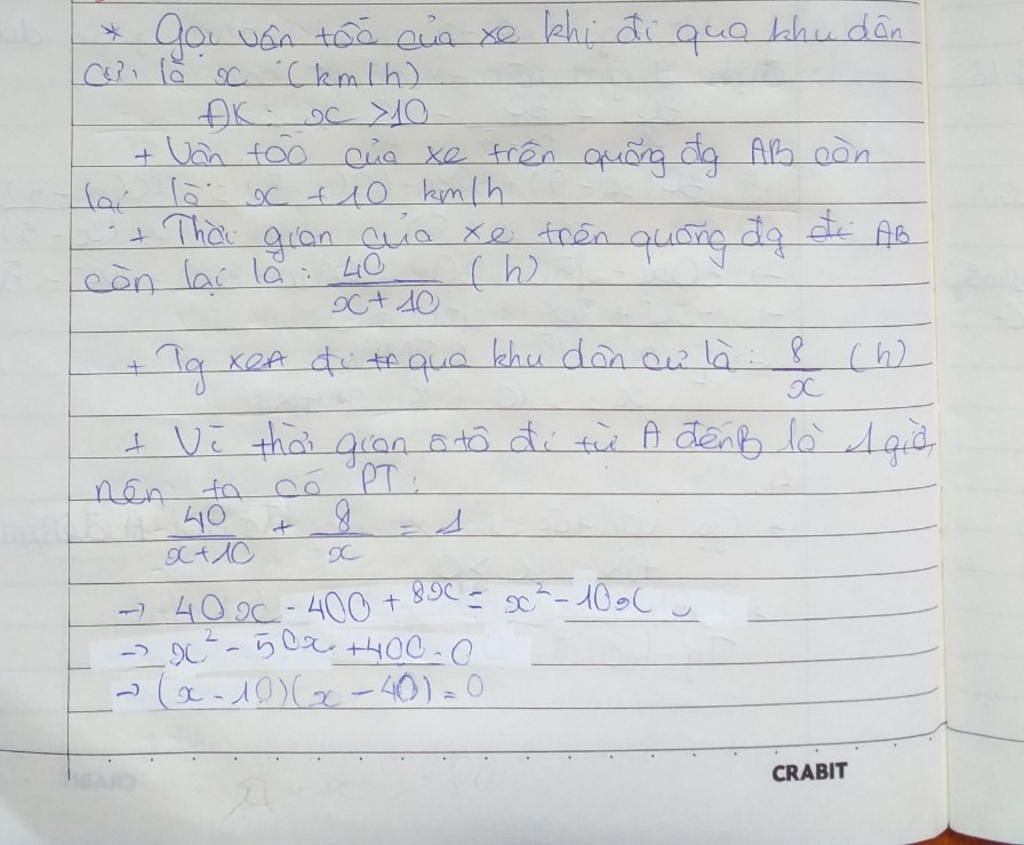 * Gọi vận tốc của xe khi đi qua khu dân
cư là x (km/h)
ĐK: x >10
+ Vận tốc của xe trên quãng đg AB còn
lại là x + 10 km/h
+ Thời gian của xe trên quãng đg AB
còn lại là: 40/(x+10) (h)
+ Tg xe đi qua khu dân cư là: 8/x (h)
+ Vì thời gian ô tô đi từ A đến B là 1 giờ,
nên ta có PT:
40/(x+10) + 8/x = 1
→ 40x - 400 + 8x = x² - 10x
→ x² - 50x + 400 = 0
→ (x - 10)(x - 40) = 0
CRABIT